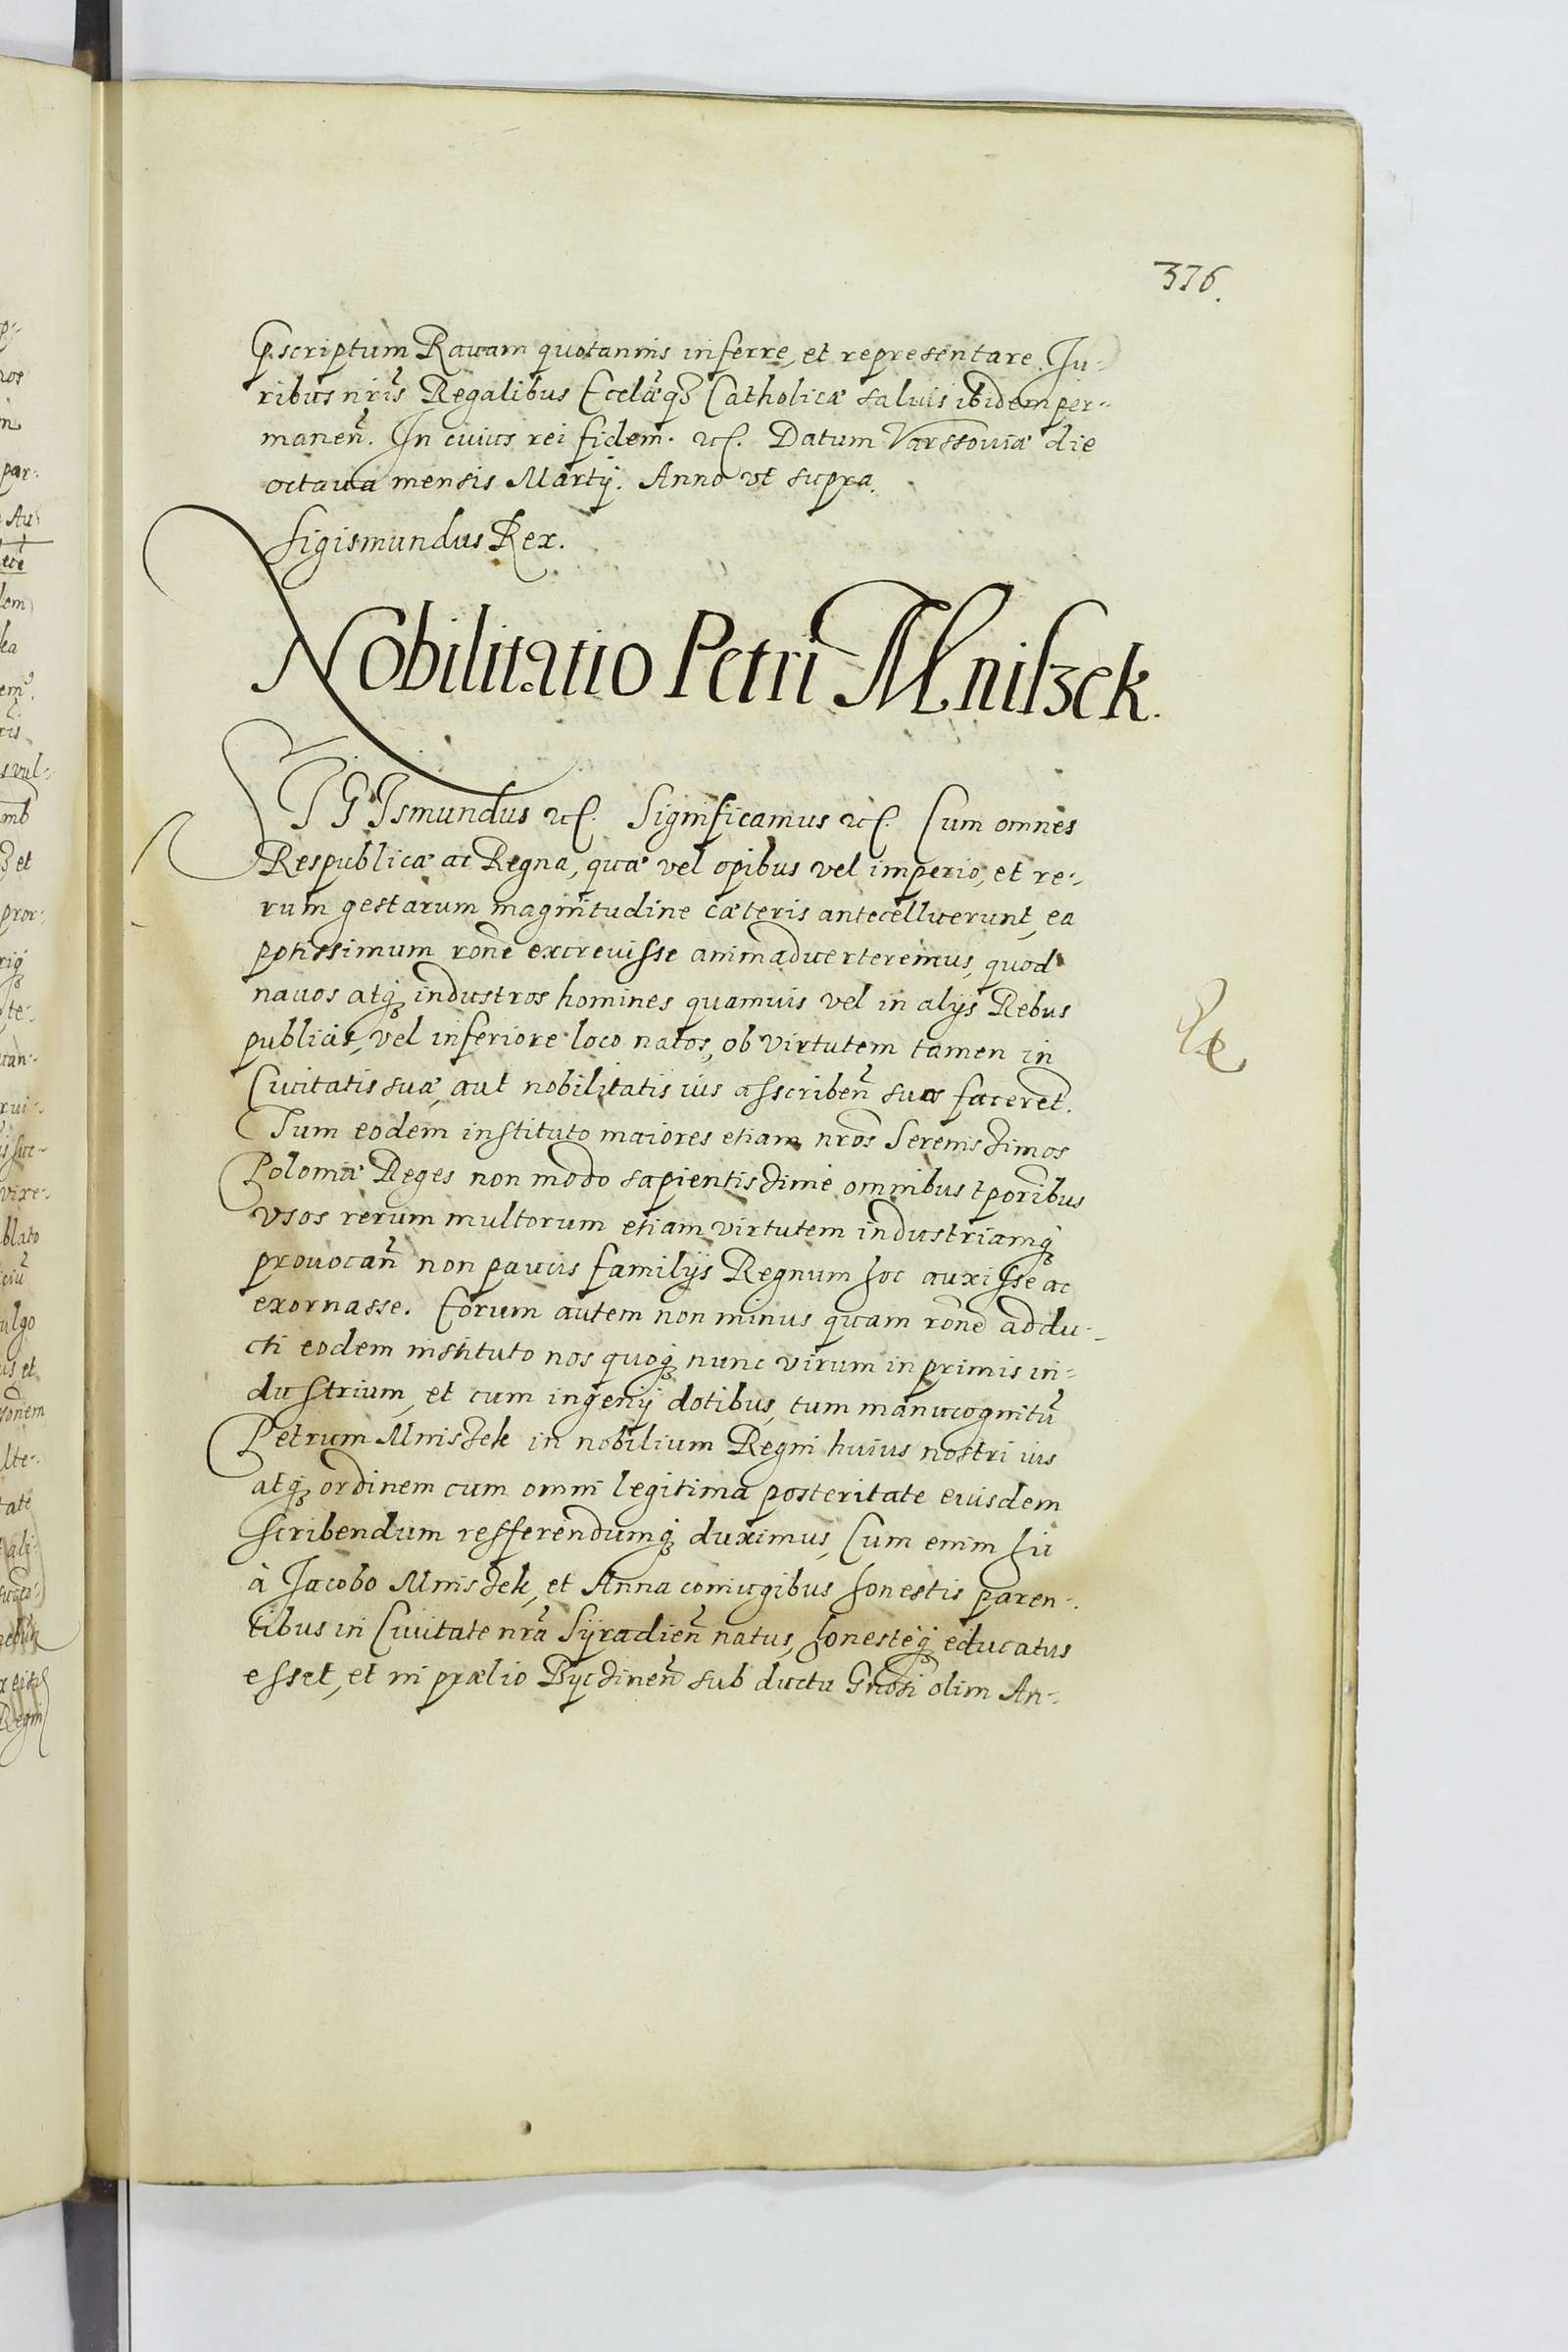 376.
p̱scriptum Rauam quotannis inferre, et representare. Ju-
ribus nr̃is Regalibus Eccl̃æq3 Catholicæ saluis ibidem per-
maneñ. In cuius rei fidem. etc. Datum Varssouiæ die
octaua mensis Martij. Anno vt supra.
Sigismundus Rex.
Nobilitatio Petri Mniszek.
SIGIsmundus etc. Significamus etc. Cum omnes
Respublicæ ac Regna, quæ vel opibus vel imperio, et re-
rum gestarum magnitudine cæteris antecelluerunt, ea
potissimum rone excreuisse animaduerteremus, quod
nauos atq3 industros homines quamuis vel in alijs Rebus
publicis, vel inferiore loco natos, ob virtutem tamen in
Ciuitatis suæ, aut nobilitatis ius asscribeñ suos faceret.
Tum eodem instituto maiores etiam nros Serenissimos
Poloniæ Reges non modo sapientissime omnibus tporibus
vsos rerum multorum etiam virtutem industriamq3
prouocañ non paucis familijs Regnum hoc auxisse ac
exornasse. Eorum autem non minus quam rone addu-
cti eodem instituto nos quoq3 nunc virum in primis in-
dustrium, et cum ingenij dotibus, tum manu cognitũ
Petrum Mniszek in nobilium Regni huius nostri ius
atq3 ordinem cum omni legitima posteritate eiusdem
scribendum refferendumq3 duximus, Cum enim hic
à Jacobo Mniszek, et Anna coniugibus honestis paren-
tibus in Ciuitate nr̃a Syradieñ natus, honesteq3 educatus
esset, et in prælio Byczineñ sub ductu Gnosi olim An-